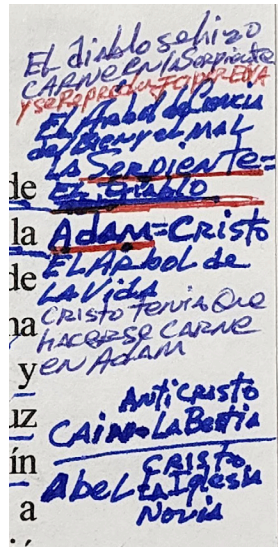 El diablo se hizo
CARNE EN LA Serpiente
y se Reprodujo por EVA
El Arbol de Ciencia
del Bien y el MAL
LA Serpiente=
de EL Diablo
la Adam=Cristo
de El Arbol de
LA Vida
na Cristo Tenia Que
HACERSE CARNE
y en Adam
Anticristo
uz CAin=La Bestia
ín Cristo
Abel La Iglesia
a Novia